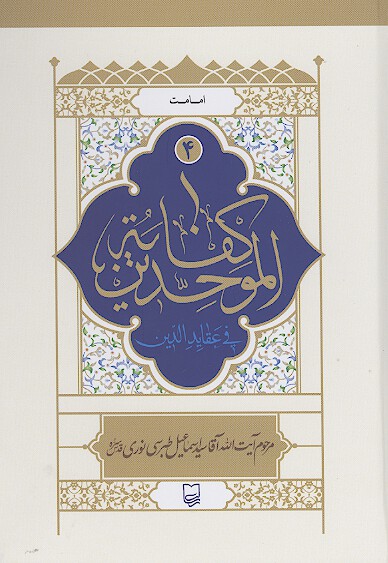 امامت
۴
كفاية
الموحّدين
في عقايد الدين
مرحوم آیت الله آقا سید اسماعیل طبرسی نوری قدس سره